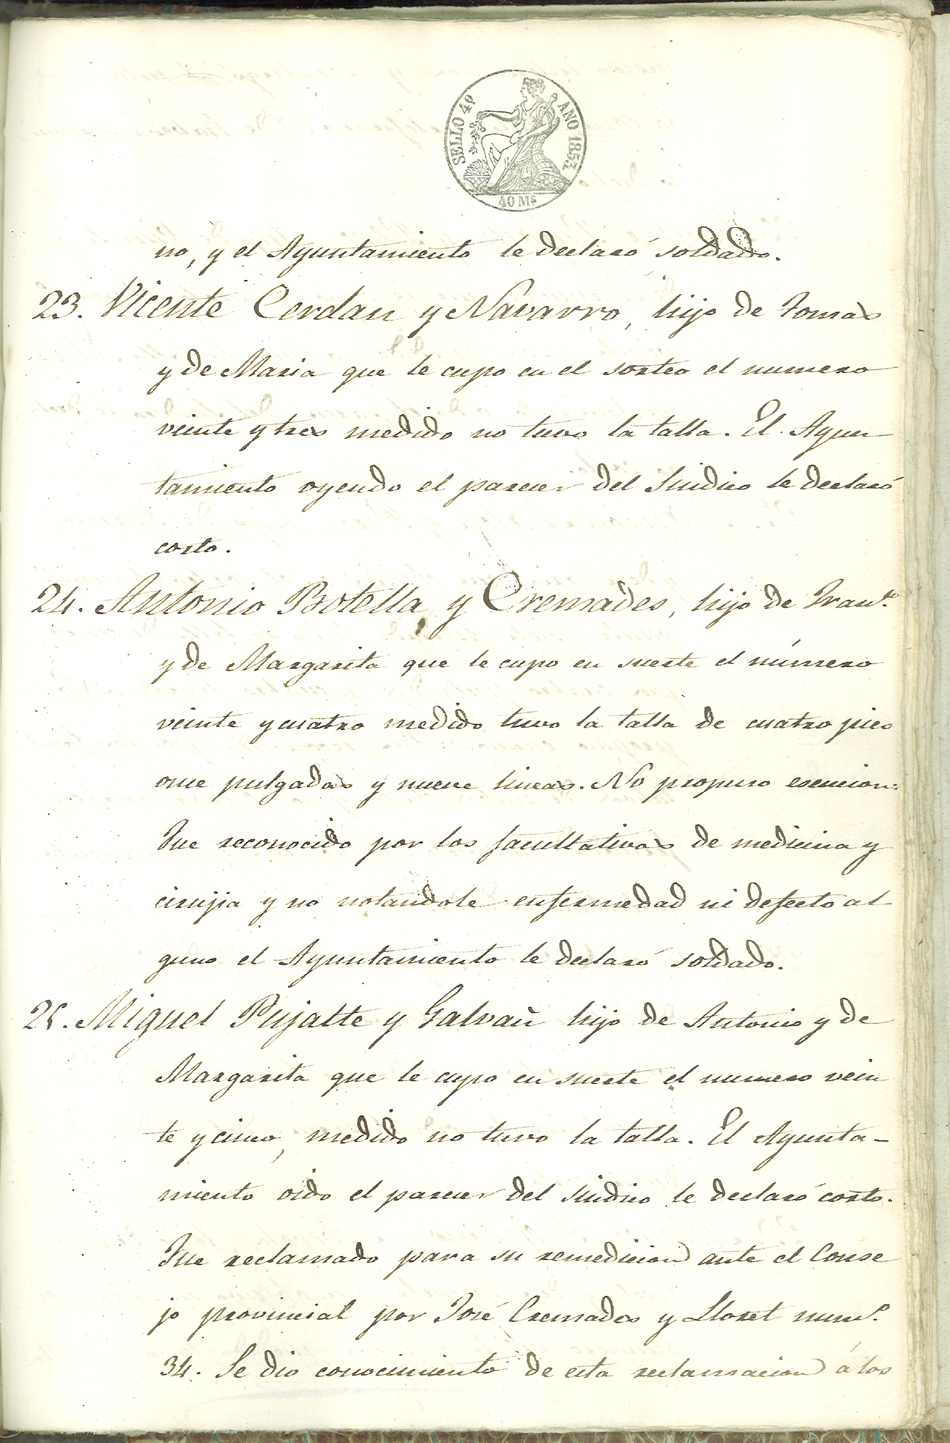 SELLO 4º AÑO 1853.
40 Ms
no, y el Ayuntamiento le declaró soldado.
23. Vicente Cerdan y Navarro, hijo de Tomas
y de Maria que le cupo en el sorteo el numero
veinte y tres medido no tuvo la talla. El Ayun
tamiento oyendo el parecer del Sindico le declaró
corto.
24. Antonio Botella y Cremades, hijo de Franco.
y de Margarita que le cupo en suerte el número
veinte y cuatro medido tuvo la talla de cuatro pies
once pulgadas y nueve lineas. No propuso esencion.
Fue reconocido por los facultativos de medicina y
cirujia y no notandole enfermedad ni defecto al
guno el Ayuntamiento le declaró soldado.
25. Miguel Pujalte y Galvañ hijo de Antonio y de
Margarita que le cupo en suerte el numero vein
te y cinco, medido no tuvo la talla. El Ayunta-
miento oido el parecer del Sindico le declaró corto.
Fue reclamado para su remedicion ante el Conse
jo provincial por José Cremades y Lloret numo.
34. Se dio conocimiento de esta reclamacion á los